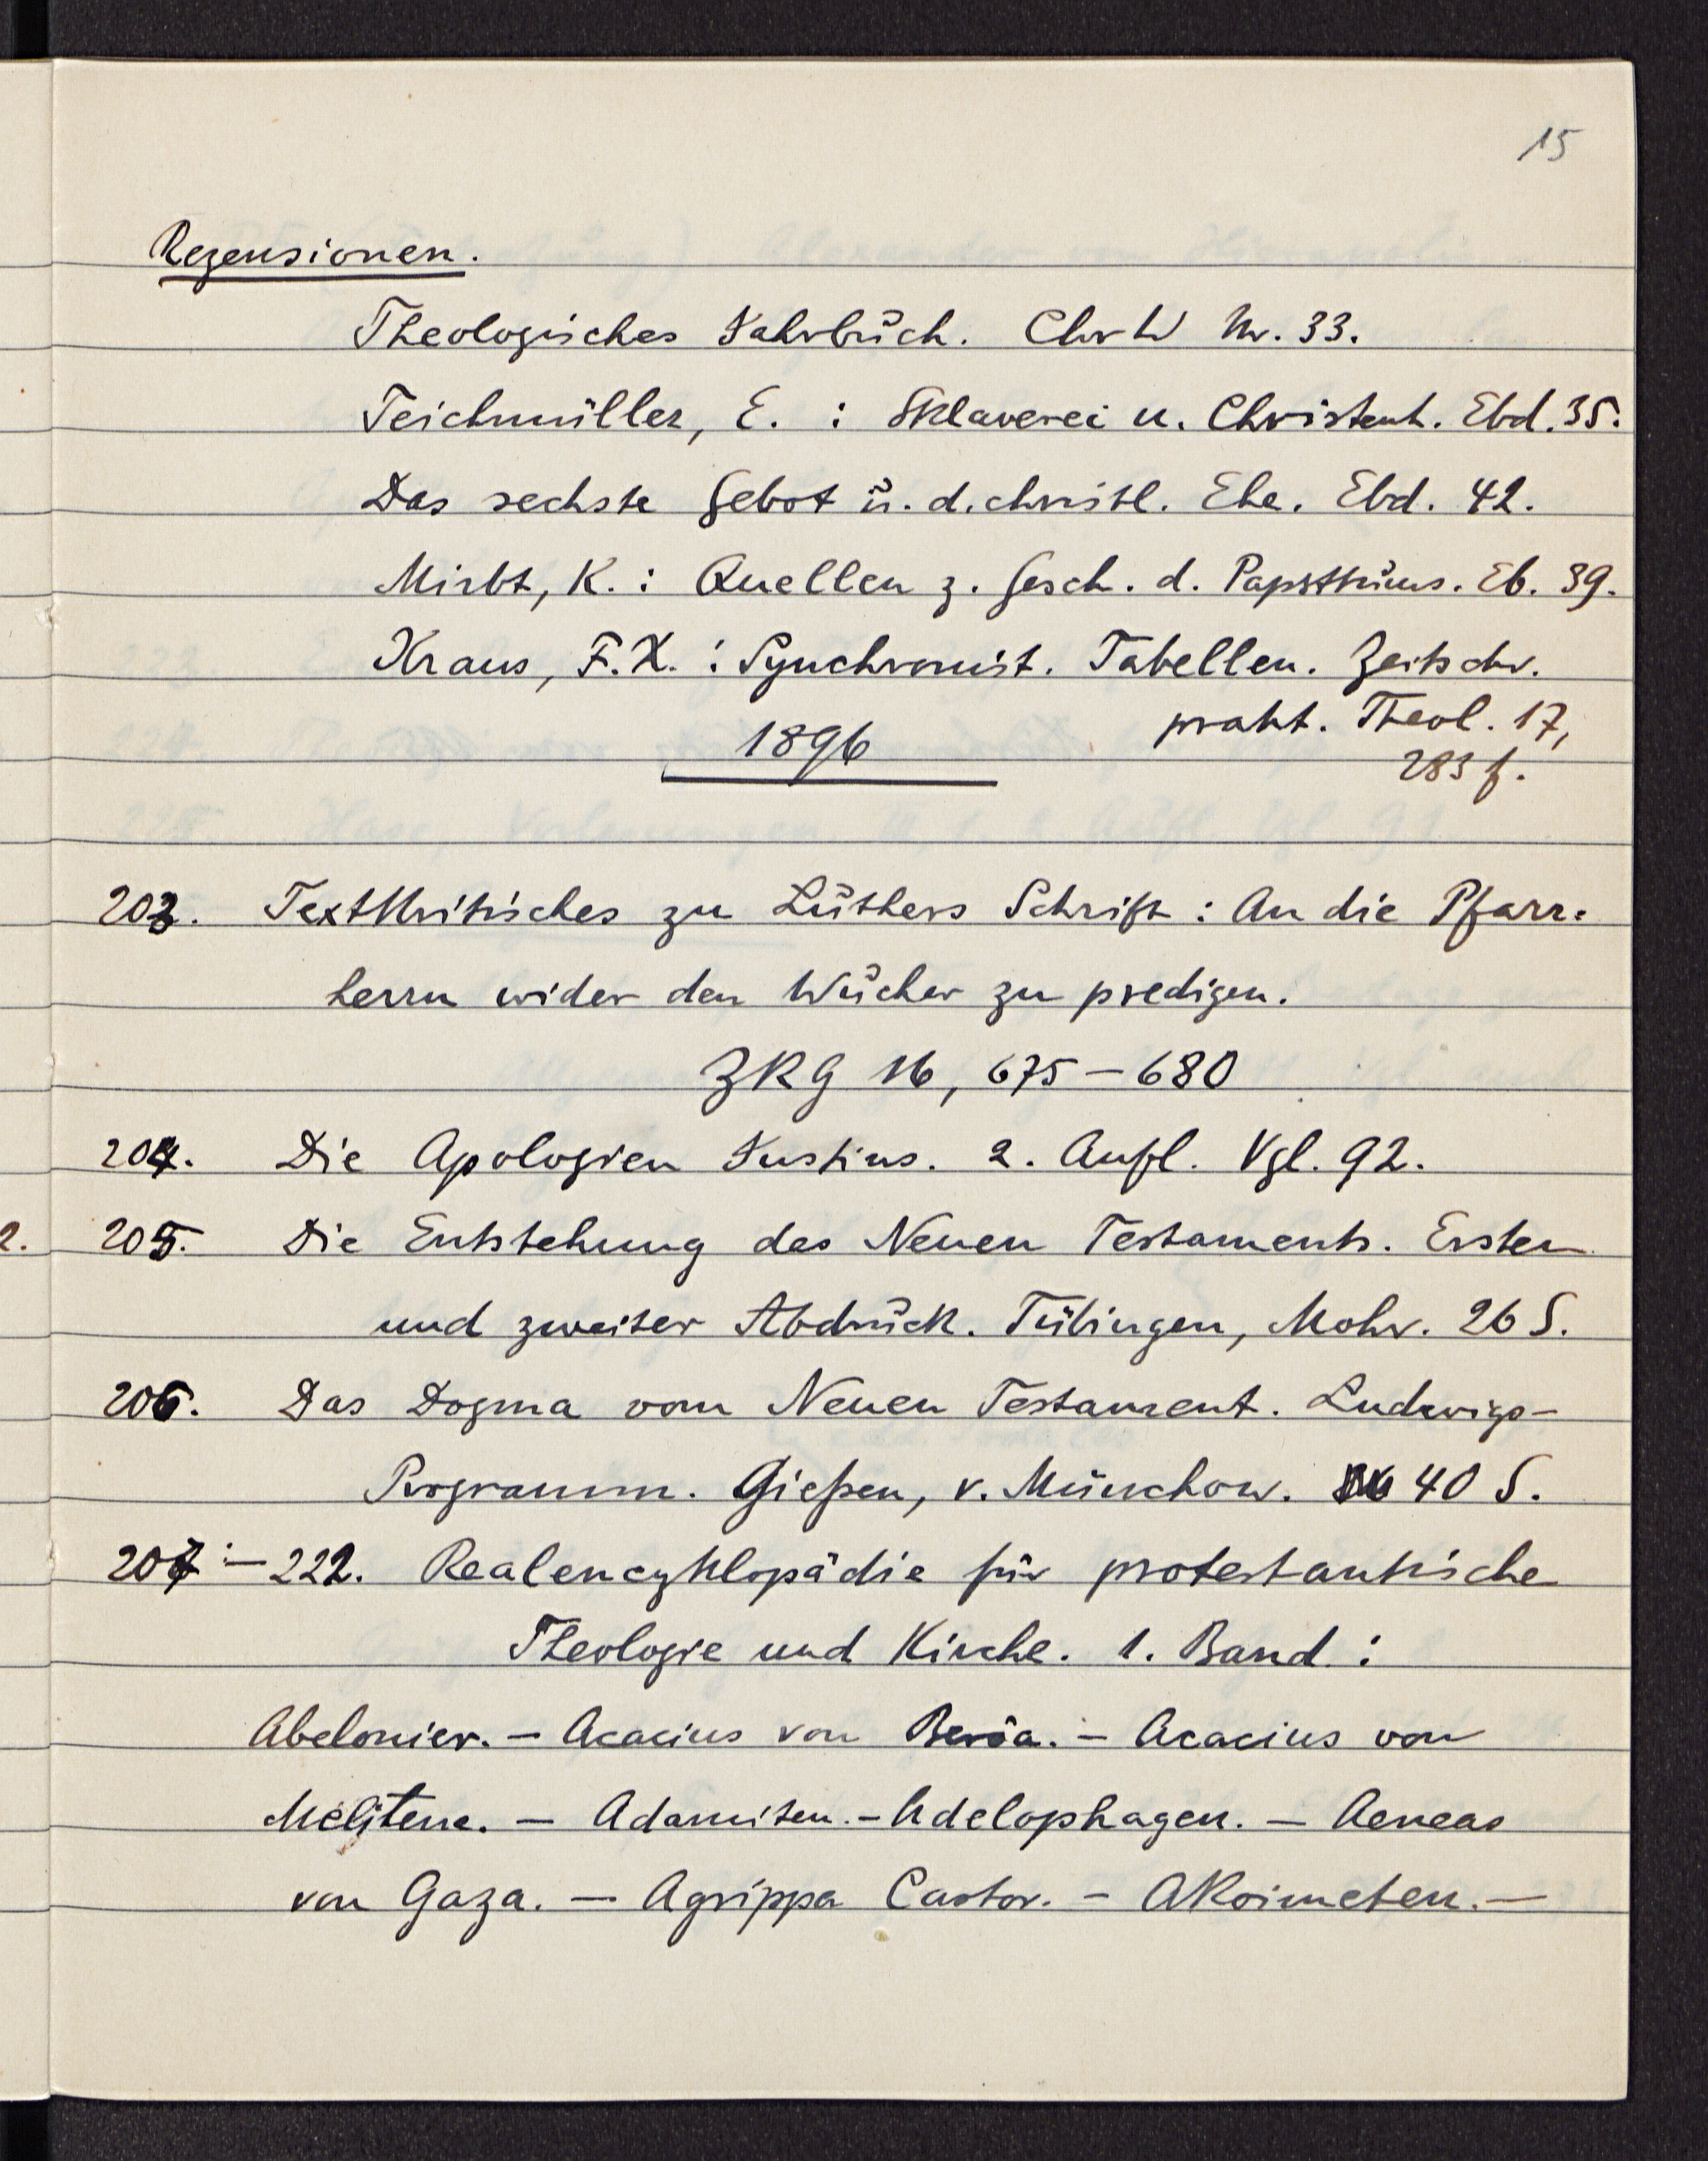 15
Rezensionen.
Theologisches Jahrbuch. ChrW Nr. 33.
Teichmüller, E. : Sklaverei u. Christent. Ebd. 35.
Das sechste Gebot u. d. christl. Ehe. Ebd. 42.
Mirbt, K. : Quellen z. Gesch. d. Papsttums. Eb. 39.
Kraus, F.X. : Synchronist. Tabellen. Zeitschr.
prakt. Theol. 17,
1896
283 f.
203. Textkritisches zu Luthers Schrift : An die Pfarr=
herrn wider den Wucher zu predigen.
ZKG 16, 675-680
204. Die Apologien Justins. 2. Aufl. Vgl. 92.
2. 205. Die Entstehung des Neuen Testaments. Erster
und zweiter Abdruck. Tübingen, Mohr. 26 S.
206. Das Dogma vom Neuen Testament. Ludwigs-
Programm. Gießen, v. Münchow. 40 S.
207.-222. Realencyklopädie für protestantische
Theologie und Kirche. 1. Band :
Abelonier. - Acacius von Beröa. - Acacius von
Melitene. - Adamiten. - Adelophagen. - Aeneas
von Gaza. - Agrippa Castor. - Akoimeten. -